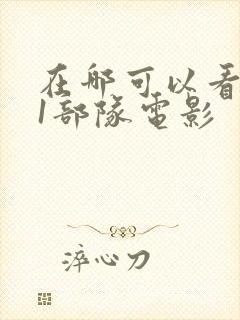 在哪可以看
1部隊電影
淬心刀